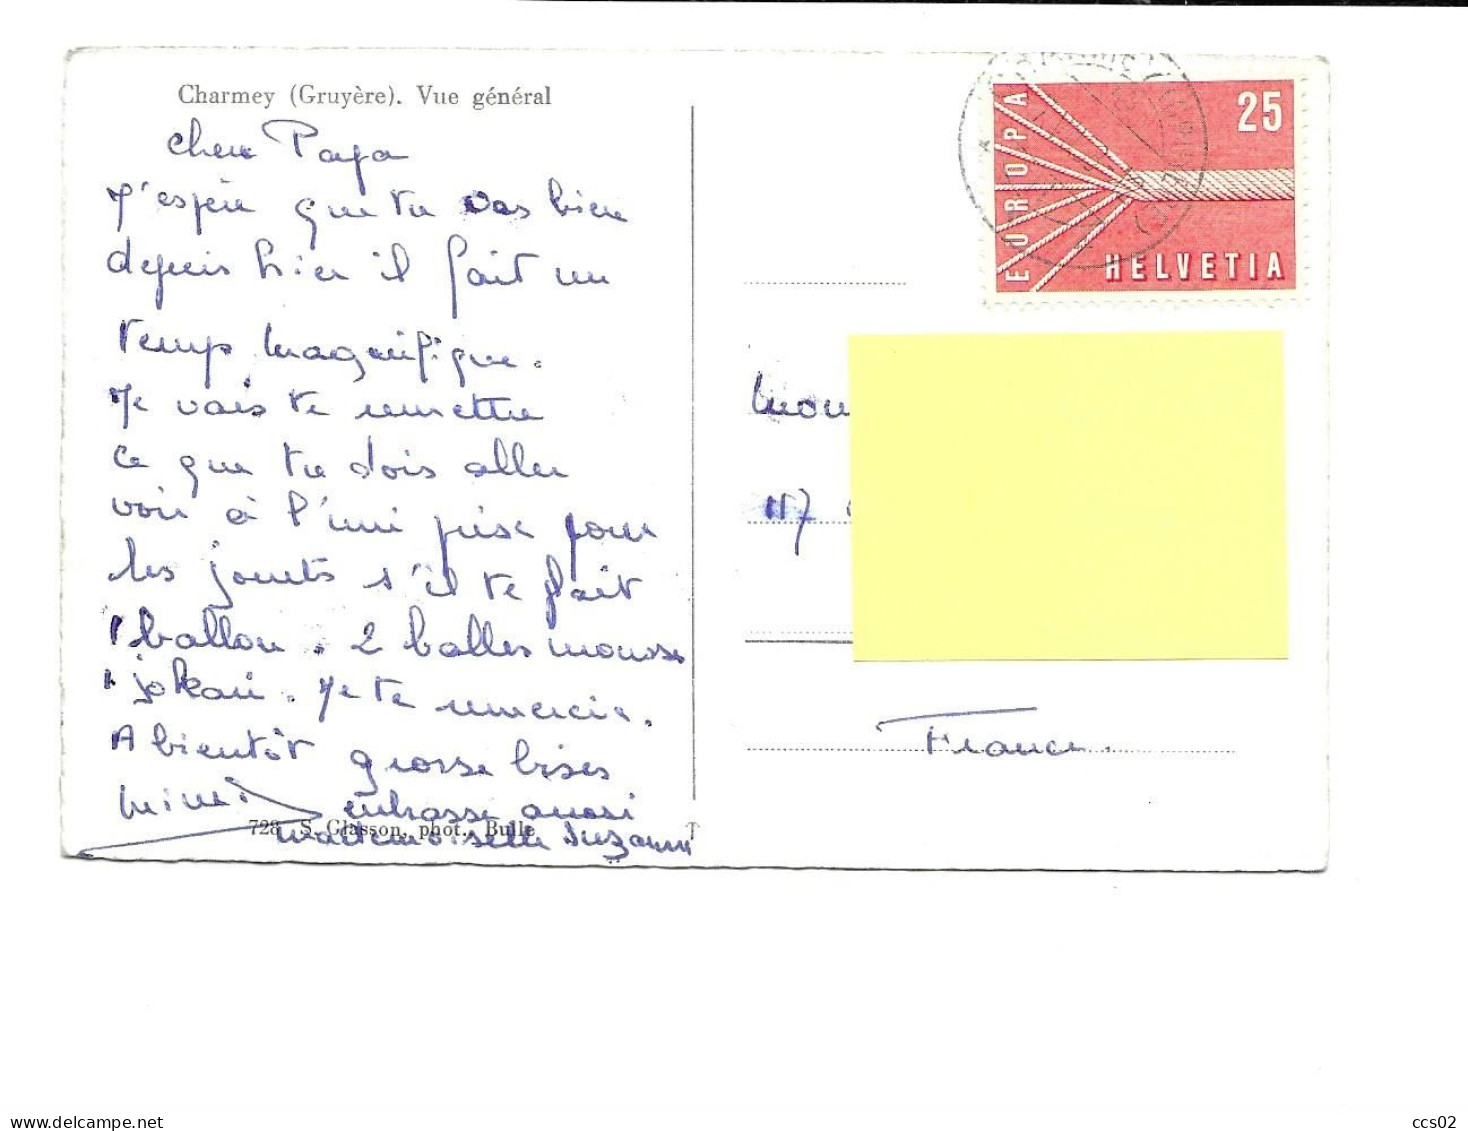 Charmey (Gruyère). Vue général
cher Papa
J'espère que tu vas bien
depuis hier il fait un
temp magnifique.
Je vais te remettre
ce que tu dois aller
voir à l'uni prise pour
les jouets s'il te plait
1 ballon. 2 balles mousse
1 jokari. Je te remercie.
A bientôt grosse bises
mimi embrasse aussi
mademoiselle Suzanne
728 S. Glasson, phot., Bulle
EUROPA
25
HELVETIA
117
France.
ccs02